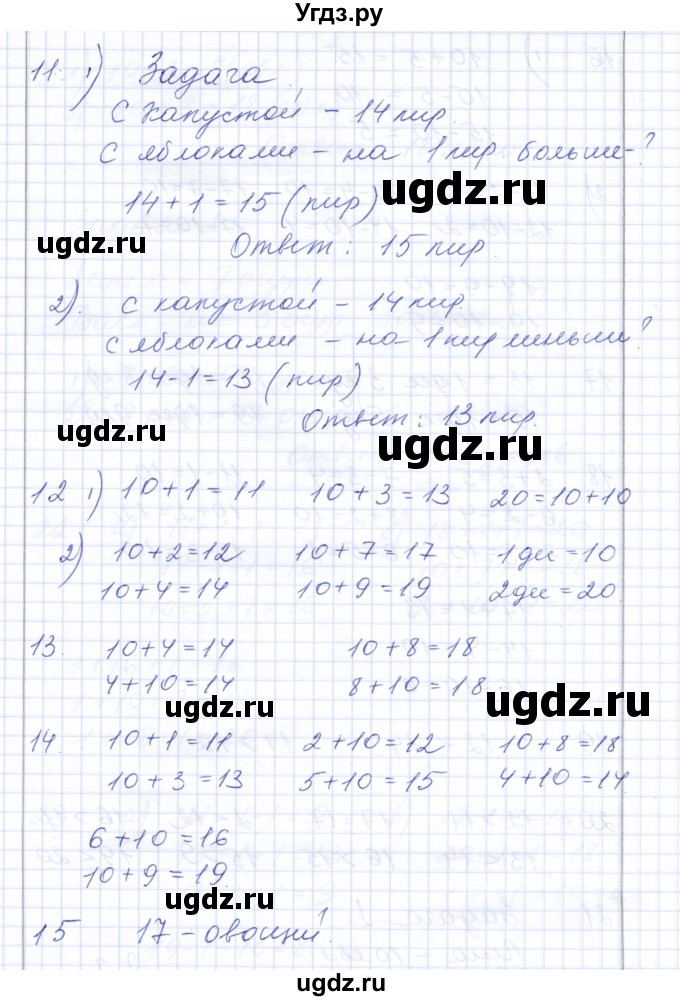 Угдз.ру
11. 1) Задача
С капустой – 14 пир.
С яблоками – на 1 пир. больше – ?
14 + 1 = 15 (пир)
ugdz.ru
ugdz.ru
Ответ: 15 пир.
2). С капустой – 14 пир.
С яблоками – на 1 пир меньше ?
14 - 1 = 13 (пир)
Ответ: 13 пир.
ugdz.ru
ugdz.ru
12 1) 10 + 1 = 11 10 + 3 = 13 20 = 10 + 10
2) 10 + 2 = 12 10 + 7 = 17 1 дес = 10
10 + 4 = 14 10 + 9 = 19 2 дес = 20
13. 10 + 4 = 14 10 + 8 = 18
4 + 10 = 14 8 + 10 = 18
ugdz.ru
ugdz.ru
14. 10 + 1 = 11 2 + 10 = 12 10 + 8 = 18
10 + 3 = 13 5 + 10 = 15 4 + 10 = 14
6 + 10 = 16
10 + 9 = 19
ugdz.ru
15 17 – овощи.
ugdz.ru